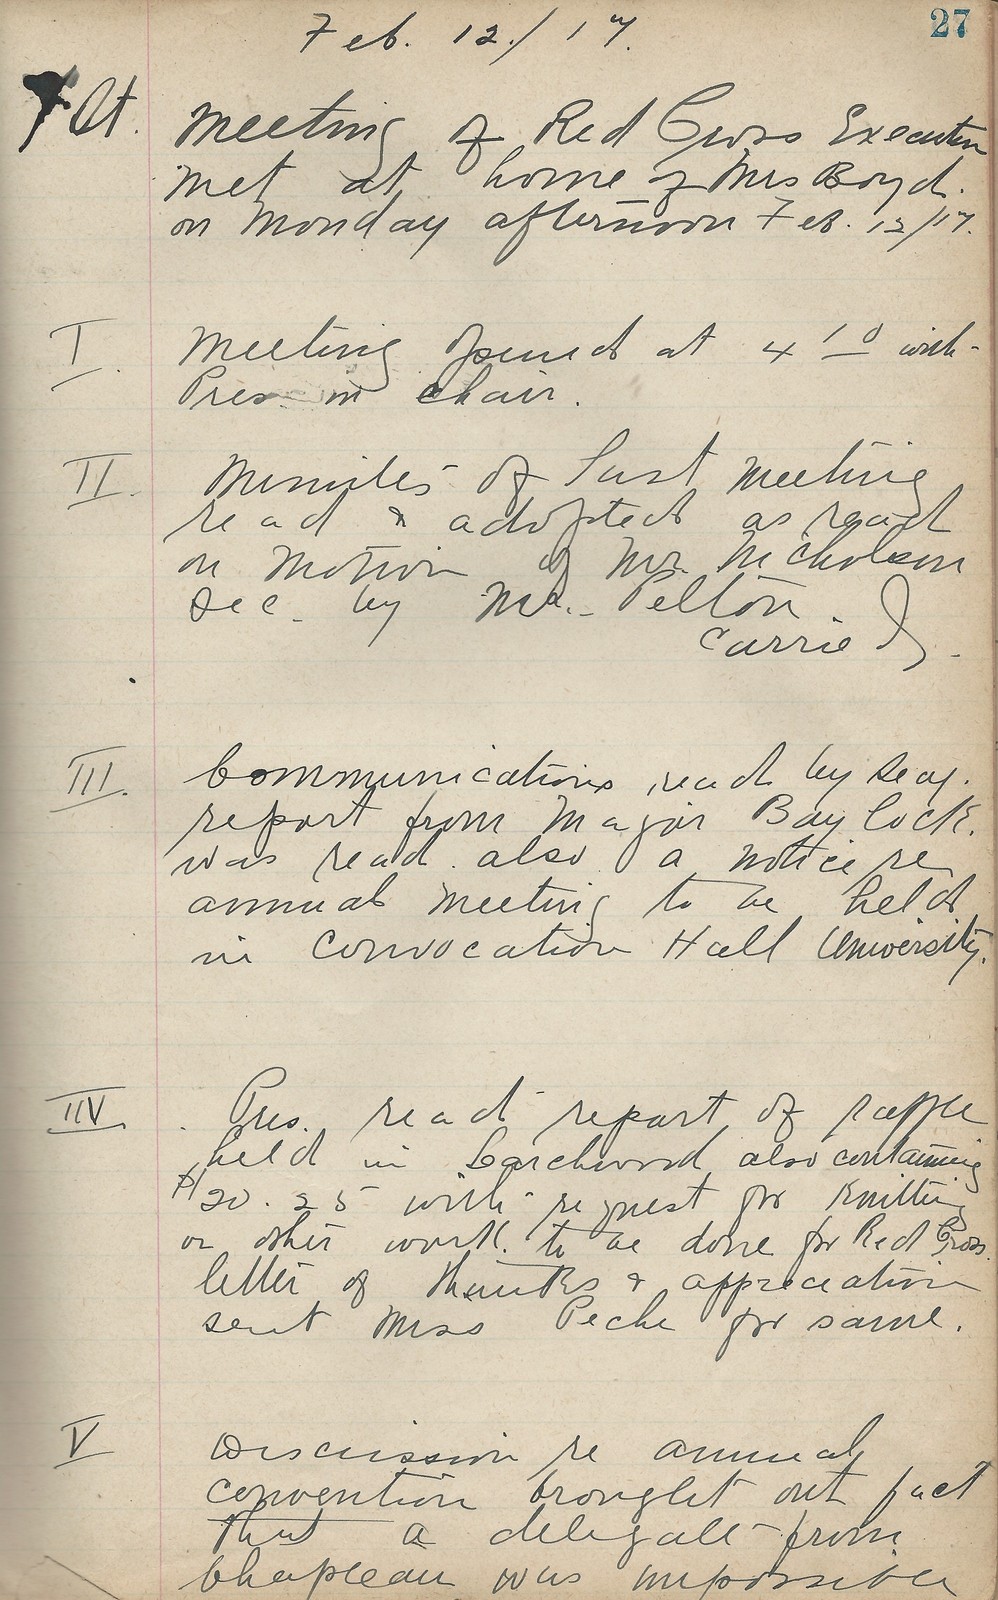 27
Feb. 12/17.
At. Meeting of Red Cross Executive
met at home of Mrs Boyd.
on Monday afternoon Feb. 12/17.
I. Meeting opened at 4 10 with
Pres. in chair.
II. Minutes of Last Meeting
read & adopted as read
on motion of Mr. Nicholson
Sec. by Mr. Pelton.
Carried.
III. Communications read by Secy.
report from Major Baylock.
was read also a notice re
annual meeting to be held
in Convocation Hall University.
IIV. Pres. read report of raffle
held in Larchwood also containing
$20.25 with request for Knitting
or other work to be done for Red Cross.
letter of thanks & appreciation
sent Miss Peche for same.
V Discussion re annual
convention brought out fact
that a delegate from
Chapleau was impossible